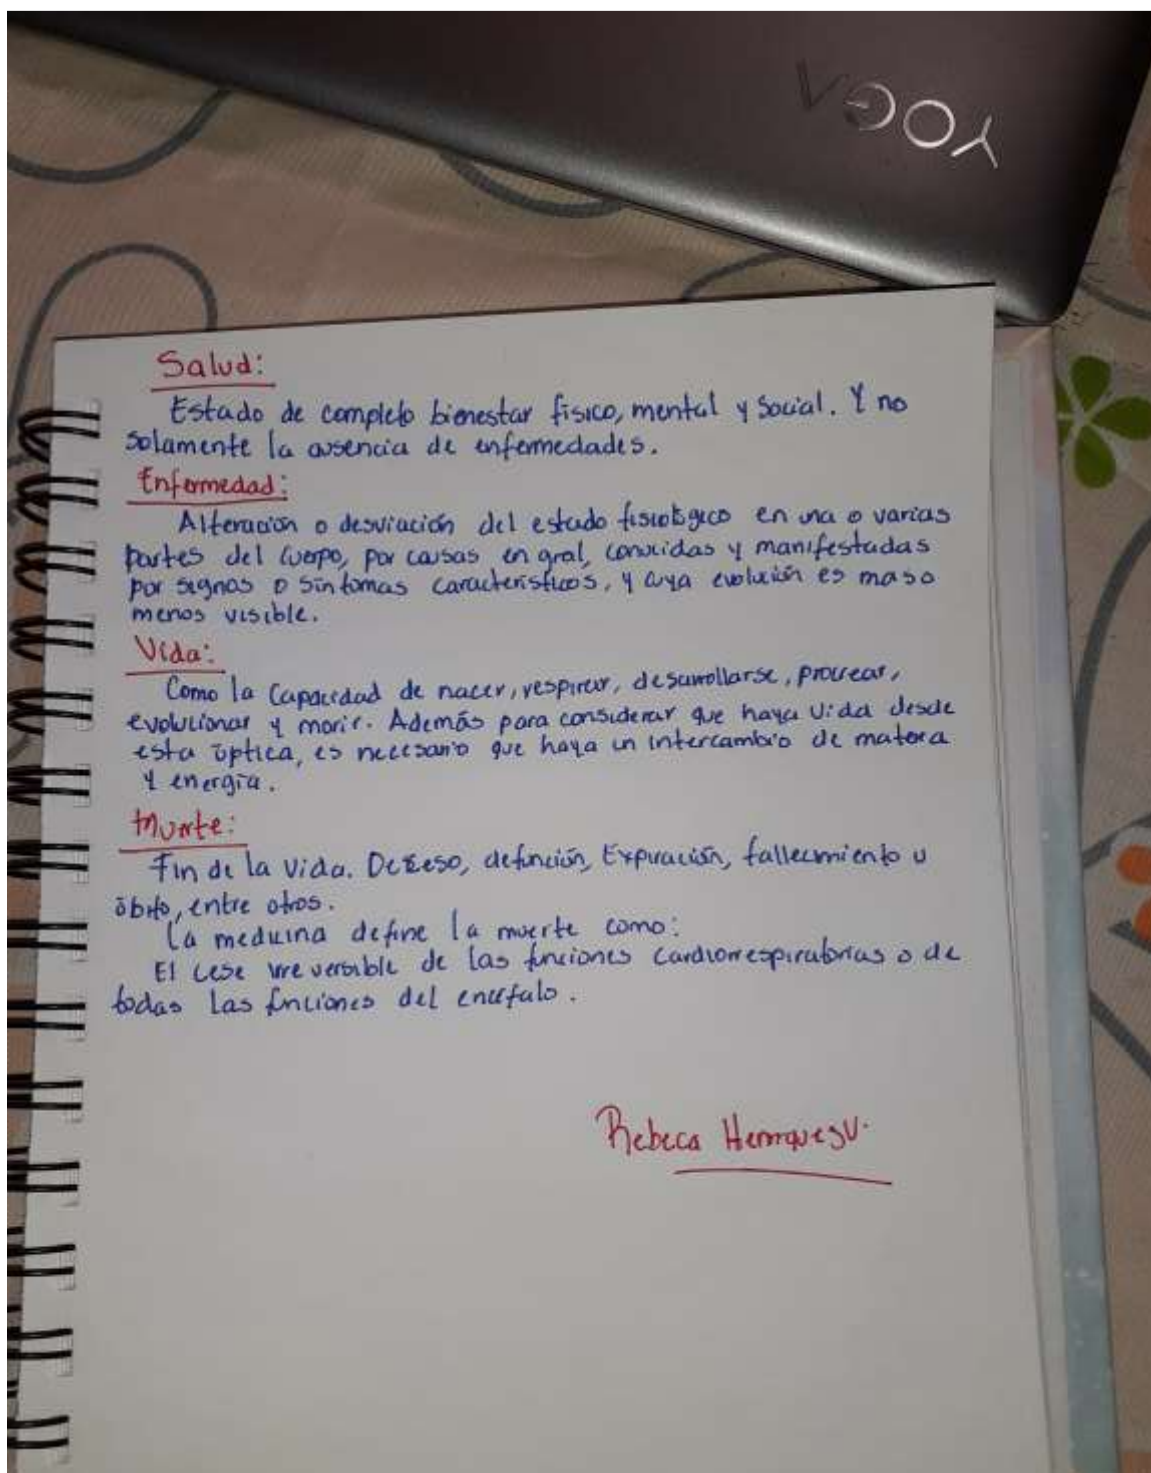 YOGA
Salud:
Estado de completo bienestar físico, mental y Social. Y no
solamente la ausencia de enfermedades.
Enfermedad:
Alteración o desviación del estado fisiológico en una o varias
partes del cuerpo, por causas en gral, conocidas y manifestadas
por signos o síntomas característicos, y cuya evolución es maso
menos visible.
Vida:
Como la Capacidad de nacer, respirar, desarrollarse, procrear,
evolucionar y morir. Además para considerar que haya Vida desde
esta óptica, es necesario que haya un intercambio de materia
y energía.
Muerte:
Fin de la Vida. Deceso, defunción, Expiración, fallecimiento u
óbito, entre otros.
La medicina define la muerte como:
El cese irreversible de las funciones cardiorrespiratorias o de
todas las funciones del encéfalo.
Rebeca Henriquez V.